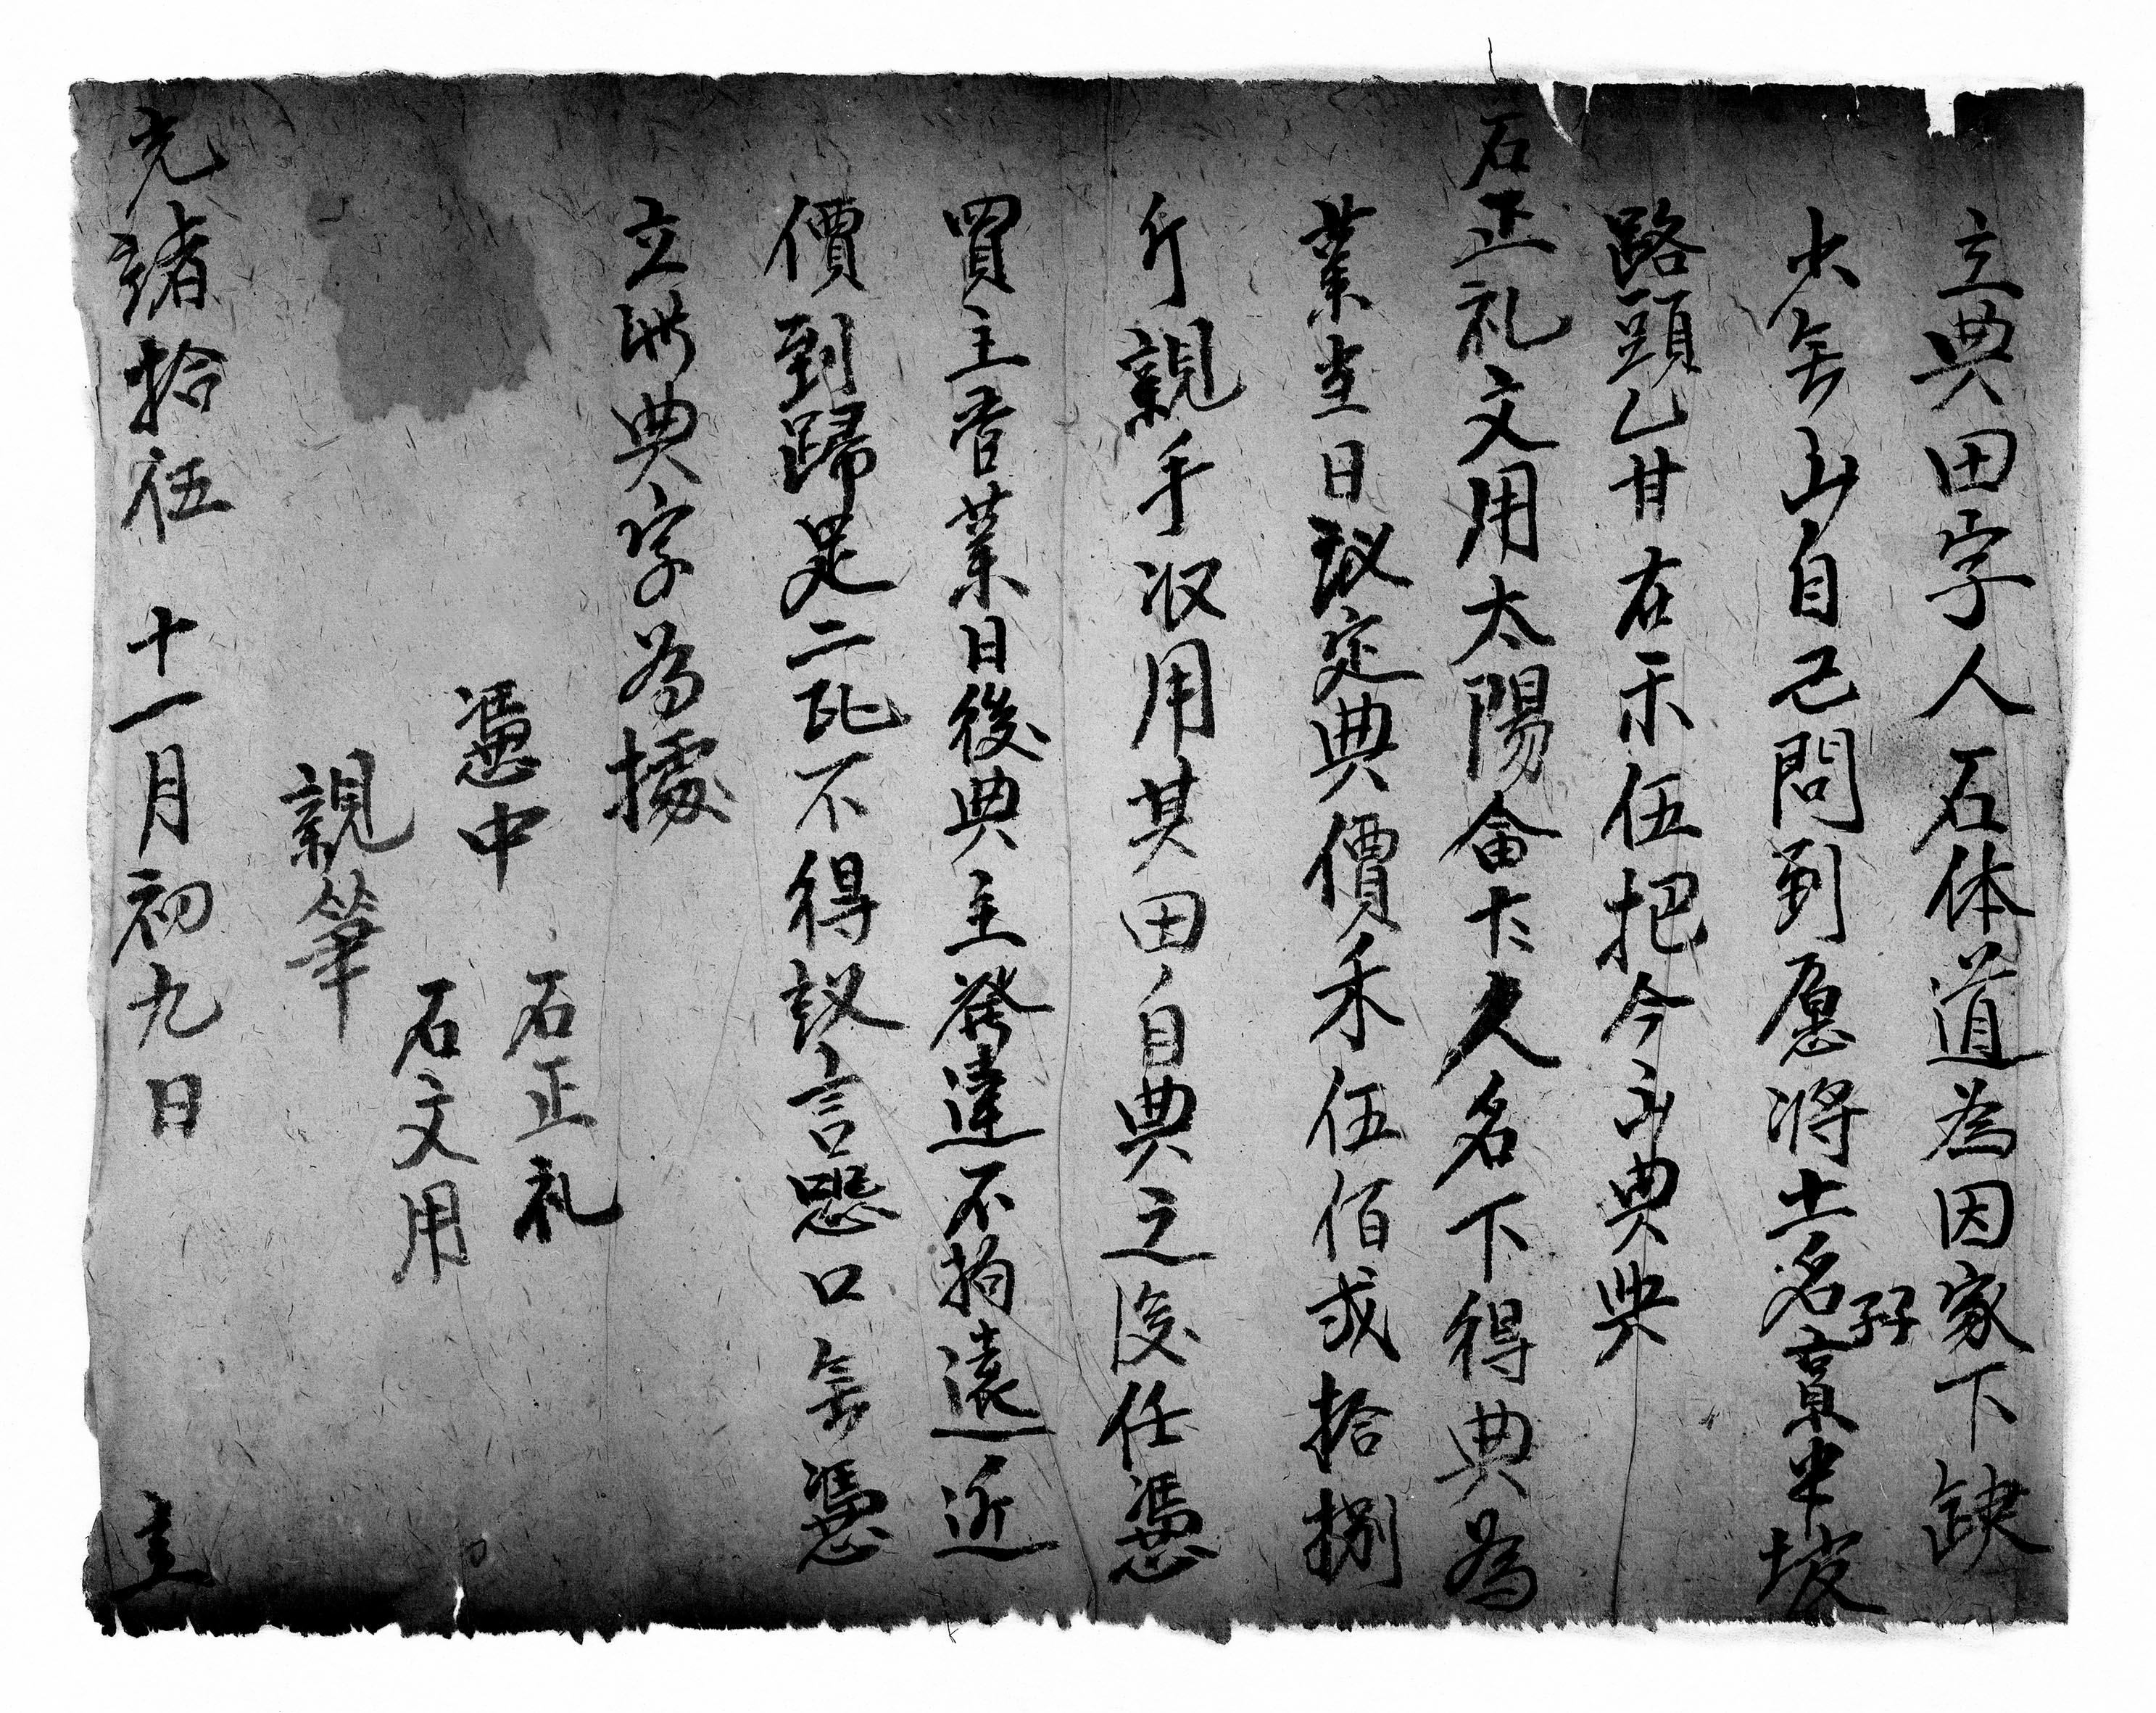 立典田字人石体道為因家下缺
少无山自己問到愿将土名㝊
路頭乙廿在禾伍把今立典與
石正礼文用太陽畬大久名下得典為
業当日議定典價禾伍佰貳拾捌
斤親手收用其田自典之後任憑
買主管業日後典主發達不拘遠近
價到歸足二比不得議言恐口無憑
立此典字為據
憑中 石正礼
石文用
親筆
光緒拾伍 十一月初九日 立